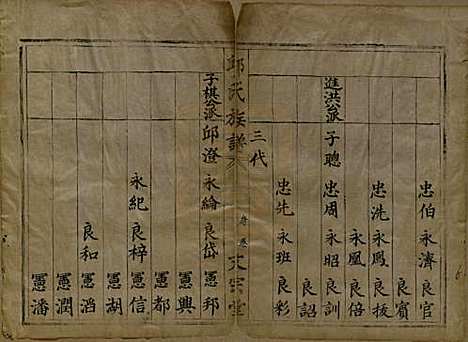 忠伯 永濟 良官
良賓
忠洗 永鳳 良拔
永鳳 良倍
進洪公派 子聰 忠周 永昭 良訓
良詔
忠先 永班 良彩
三代
邱氏族譜 文宗堂
子棋公派 邱澄 永綸 良岱 憲邦
憲興
憲都
永紀 良梓 憲信
憲湖
良和 憲滔
憲潤
憲潘